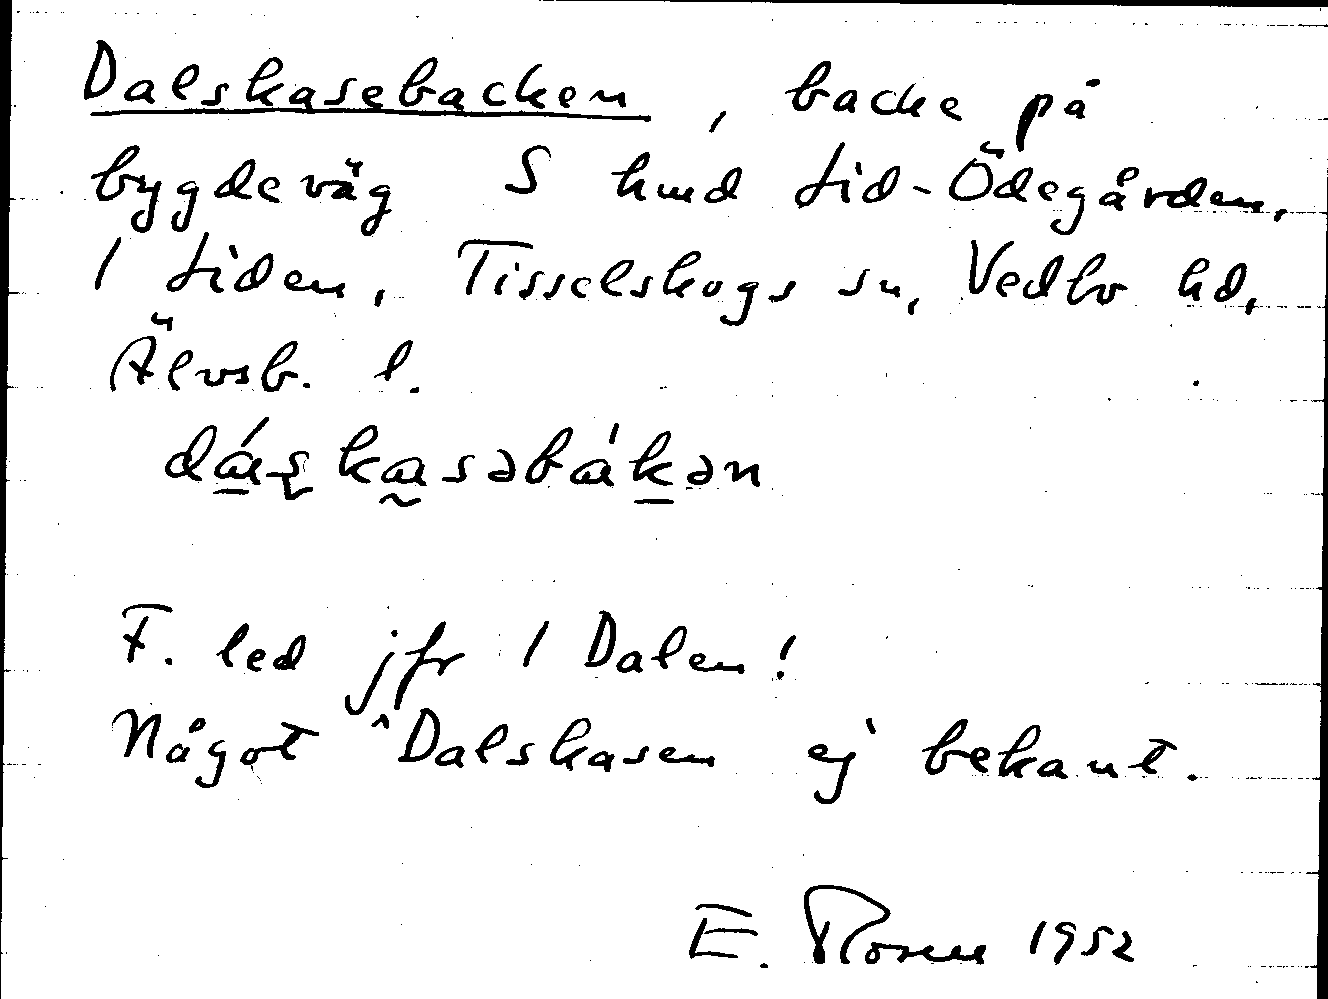 Dalskasebacken, backe på
bygdeväg S hmd Lid-Ödegården,
1 Liden, Tisselskogs sn, Vedbo hd,
Älvsb. l.
dáʂkasəbákən
F. led jfr 1 Dalen!
Något ^Dalskasen ej bekant.
E. Rosen 1952